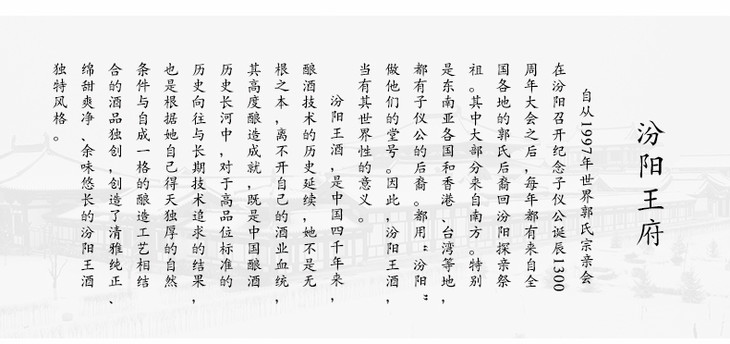 汾阳王府
自从1997年世界郭氏宗亲会
在汾阳召开纪念子仪公诞辰1300
周年大会之后，每年都有来自全
国各地的郭氏后裔回汾阳探亲祭
祖。其中大部分来自南方。特别
是东南亚各国和香港、台湾等地，
都有子仪公的后裔。都用“汾阳”
做他们的堂号。因此，汾阳王酒，
当有其世界性的意义。
汾阳王酒，是中国四千年来，
酿酒技术的历史延续，她不是无
根之本，离不开自己的酒业血统，
其高度酿造成就，既是中国酿酒
历史长河中，对于高品位标准的
历史向往与长期技术追求的结果，
也是根据她自己得天独厚的自然
条件与自成一格的酿造工艺相结
合的酒品独创，创造了清雅纯正、
绵甜爽净、余味悠长的汾阳王酒
独特风格。